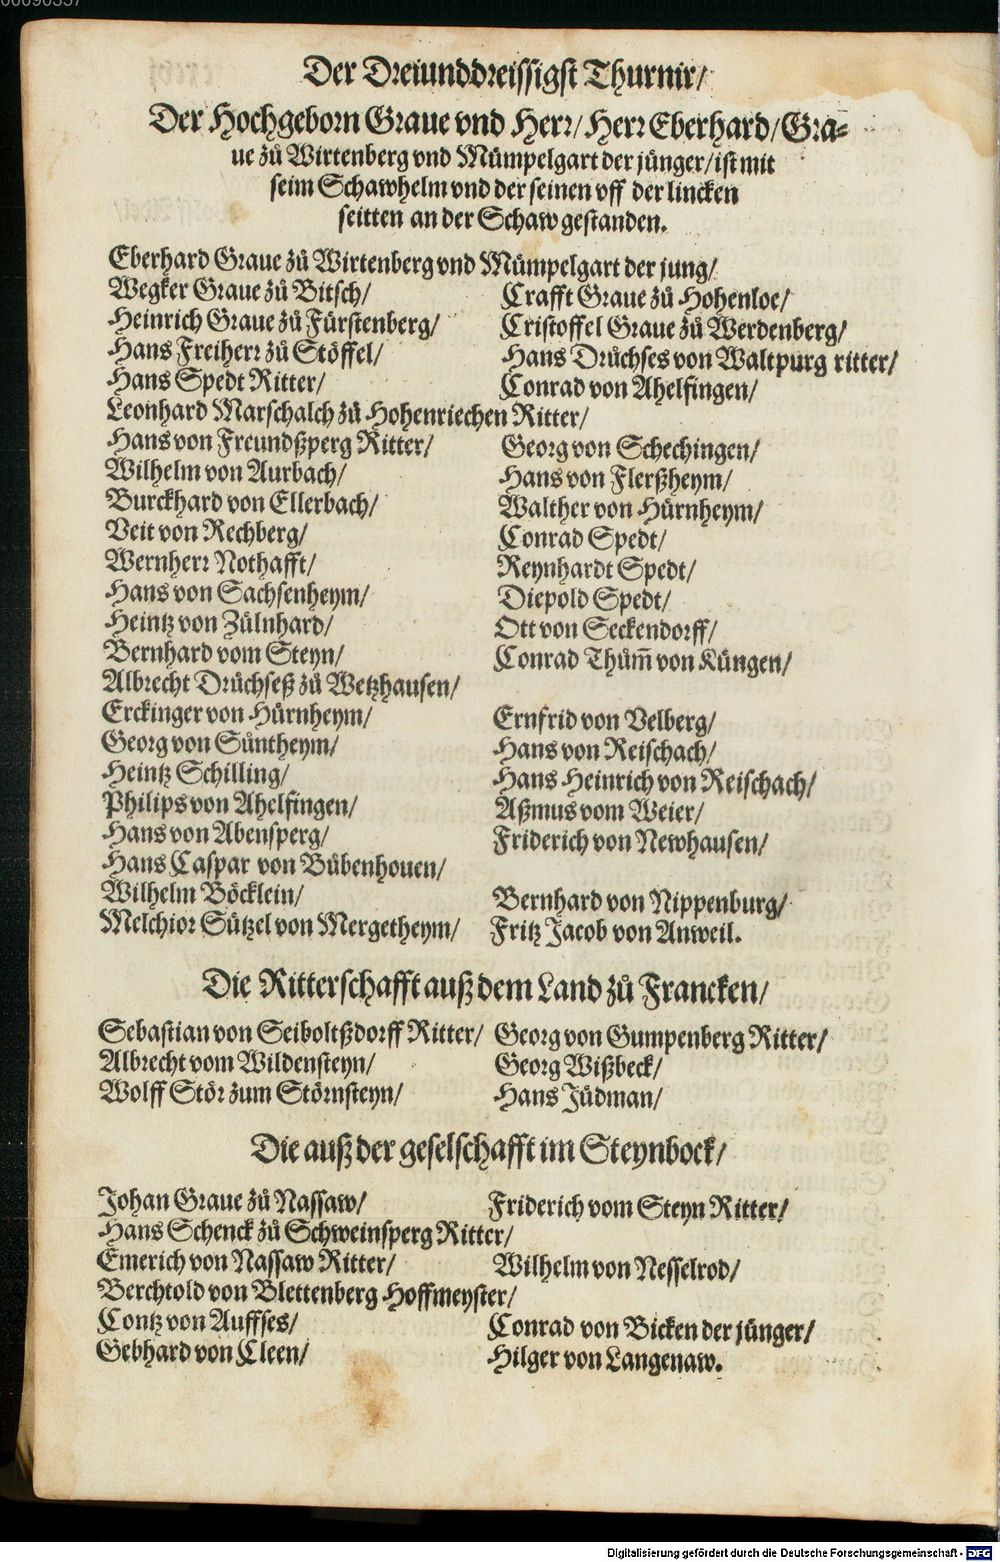 00090357
Der Dreiunddreissigst Thurnir/
Der Hochgeborn Graue vnd Herr/ Herr Eberhard/ Gra-
ue zů Wirtenberg vnd Mümpelgart der jünger/ ist mit
seim Schawhelm vnd der seinen vff der lincken
seitten an der Schaw gestanden.
Eberhard Graue zů Wirtenberg vnd Mümpelgart der jung/
Wegker Graue zů Bitsch/ Crafft Graue zů Hohenloe/
Heinrich Graue zů Fürstenberg/ Cristoffel Graue zů Werdenberg/
Hans Freiherr zů Stöffel/ Hans Drüchses von Waltpurg ritter/
Hans Spedt Ritter/ Conrad von Ahelfingen/
Leonhard Marschalch zů Hohenriechen Ritter/
Hans von Freundßperg Ritter/ Georg von Schechingen/
Wilhelm von Aurbach/ Hans von Flerßheym/
Burckhard von Ellerbach/ Walther von Hürnheym/
Veit von Rechberg/ Conrad Spedt/
Wernherr Nothafft/ Reynhardt Spedt/
Hans von Sachsenheym/ Diepold Spedt/
Heintz von Zülnhard/ Ott von Seckendorff/
Bernhard vom Steyn/ Conrad Thüm̃ von Küngen/
Albrecht Drüchseß zů Wetzhausen/
Erckinger von Hürnheym/ Ernfrid von Velberg/
Georg von Süntheym/ Hans von Reischach/
Heintz Schilling/ Hans Heinrich von Reischach/
Philips von Ahelfingen/ Aßmus vom Weier/
Hans von Abensperg/ Friderich von Newhausen/
Hans Caspar von Bübenhouen/
Wilhelm Böcklein/ Bernhard von Nippenburg/
Melchior Sützel von Mergetheym/ Fritz Jacob von Anweil.
Die Ritterschafft auß dem Land zů Francken/
Sebastian von Seiboltßdorff Ritter/ Georg von Gumpenberg Ritter/
Albrecht vom Wildensteyn/ Georg Wißbeck/
Wolff Stör zum Störnsteyn/ Hans Jüdman/
Die auß der geselschafft im Steynbock/
Johan Graue zů Nassaw/ Friderich vom Steyn Ritter/
Hans Schenck zů Schweinsperg Ritter/
Emerich von Nassaw Ritter/ Wilhelm von Nesselrod/
Berchtold von Blettenberg Hoffmeyster/
Contz von Auffses/ Conrad von Bicken der jünger/
Gebhard von Cleen/ Hilger von Langenaw.
Digitalisierung gefördert durch die Deutsche Forschungsgemeinschaft - DFG